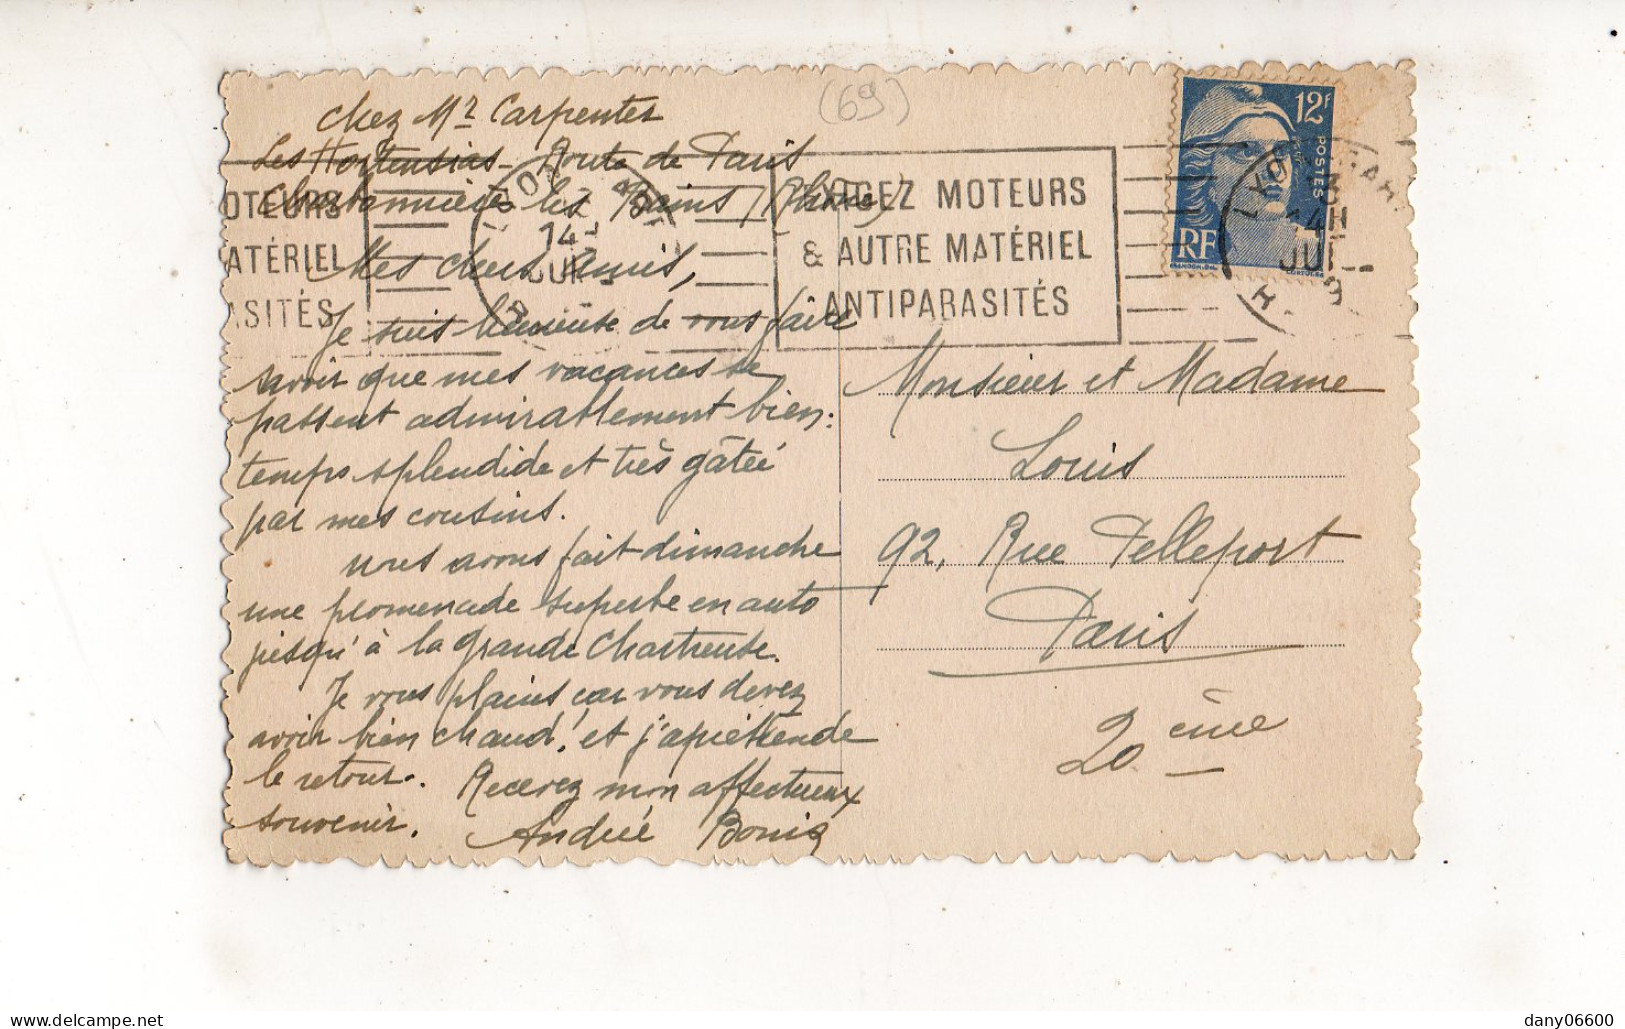 Chez Mr Carpentier
Les Hortensias - Route de Paris
Charbonnières les Bains (Rhône)
Mes chers amis,
Je suis heureuse de vous faire
savoir que mes vacances se
passent admirablement bien:
temps splendide et très gâtée
par mes cousins.
nous avons fait dimanche
une promenade superbe en auto
jusqu'à la grande Chartreuse.
Je vous plains car vous devez
avoir bien chaud! et j'apréhende
le retour. Recevez mon affectueux
souvenir. Andrée
(69)
OTEURS
ATÉRIEL
ASITÉS
EXIGEZ MOTEURS
& AUTRE MATÉRIEL
ANTIPARASITÉS
12F
POSTES
RF
LYON GARE
14H
JUIL
Monsieur et Madame
Louis
92, Rue Pelleport
Paris
20 ème
delcampe.net
dany06600